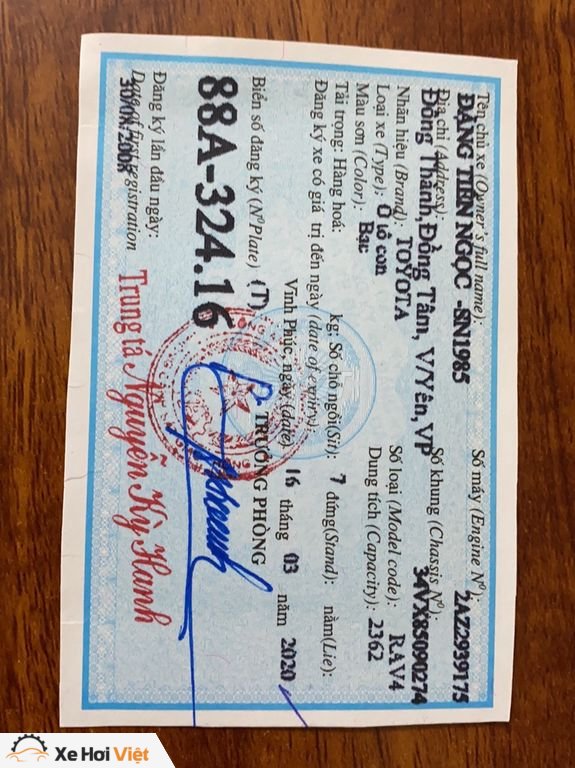 Tên chủ xe (Owner's full name):
ĐẶNG TIẾN NGỌC -SN1985
Địa chỉ (Address):
Đồng Thành,Đồng Tâm, V/Yên, VP
Nhãn hiệu (Brand): TOYOTA
Loại xe (Type): Ô tô con
Màu sơn (Color): Bạc
Tải trọng: Hàng hoá: kg; Số chỗ ngồi(Sit): 7 đứng(Stand): nằm(Lie):
Đăng ký xe có giá trị đến ngày (date of expiry):
Số máy (Engine Nº):
2AZ2999175
Số khung (Chassis Nº):
34VX85090274
Số loại (Model code): RAV4
Dung tích (Capacity): 2362
Vĩnh Phúc, ngày (date) 16 tháng 03 năm 2020
Biển số đăng ký (NºPlate) (T)
88A-324.16
TRƯỞNG PHÒNG
Đăng ký lần đầu ngày:
Date of first registration
Trung tá Nguyễn Kỳ Hanh
Xe Hơi Việt